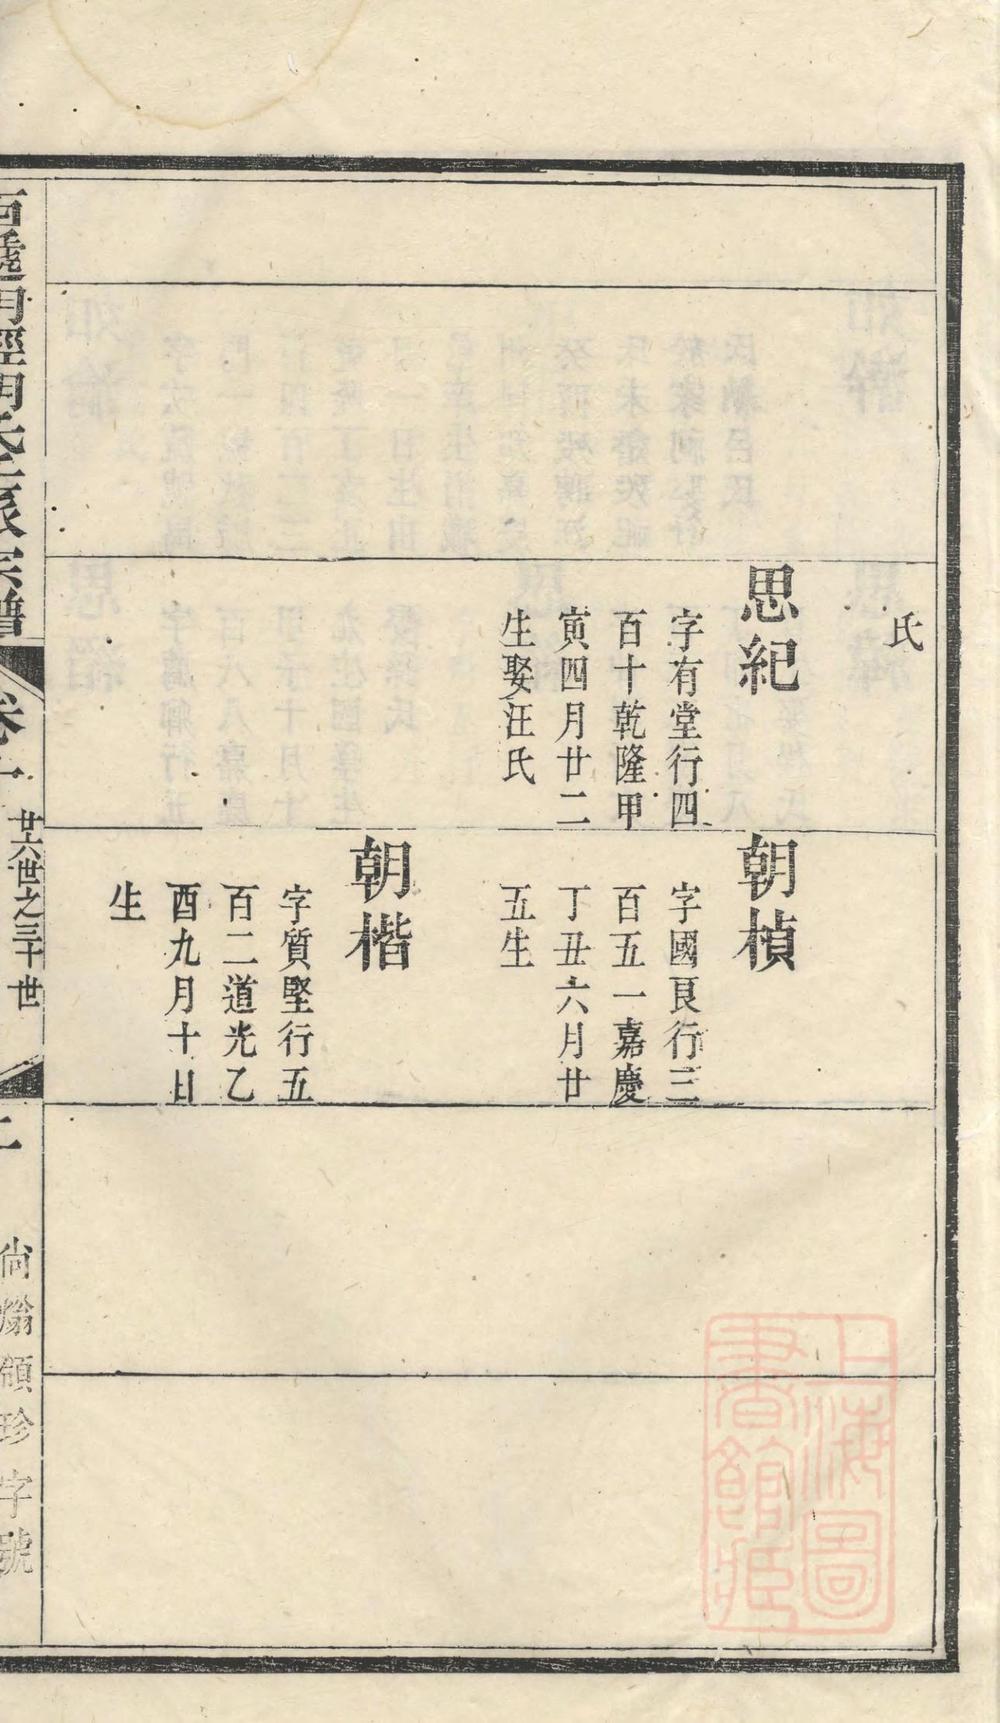 氏
思紀
字有堂行四
百十乾隆甲
寅四月廿二
生娶汪氏
朝楨
字國良行三
百五一嘉慶
丁丑六月廿
五生
朝楷
字質堅行五
百二道光乙
酉九月十日
生
西遞明經胡氏壬派宗譜
卷十
廿六世之三十世
尙煽領珍字號
上海圖
書館藏